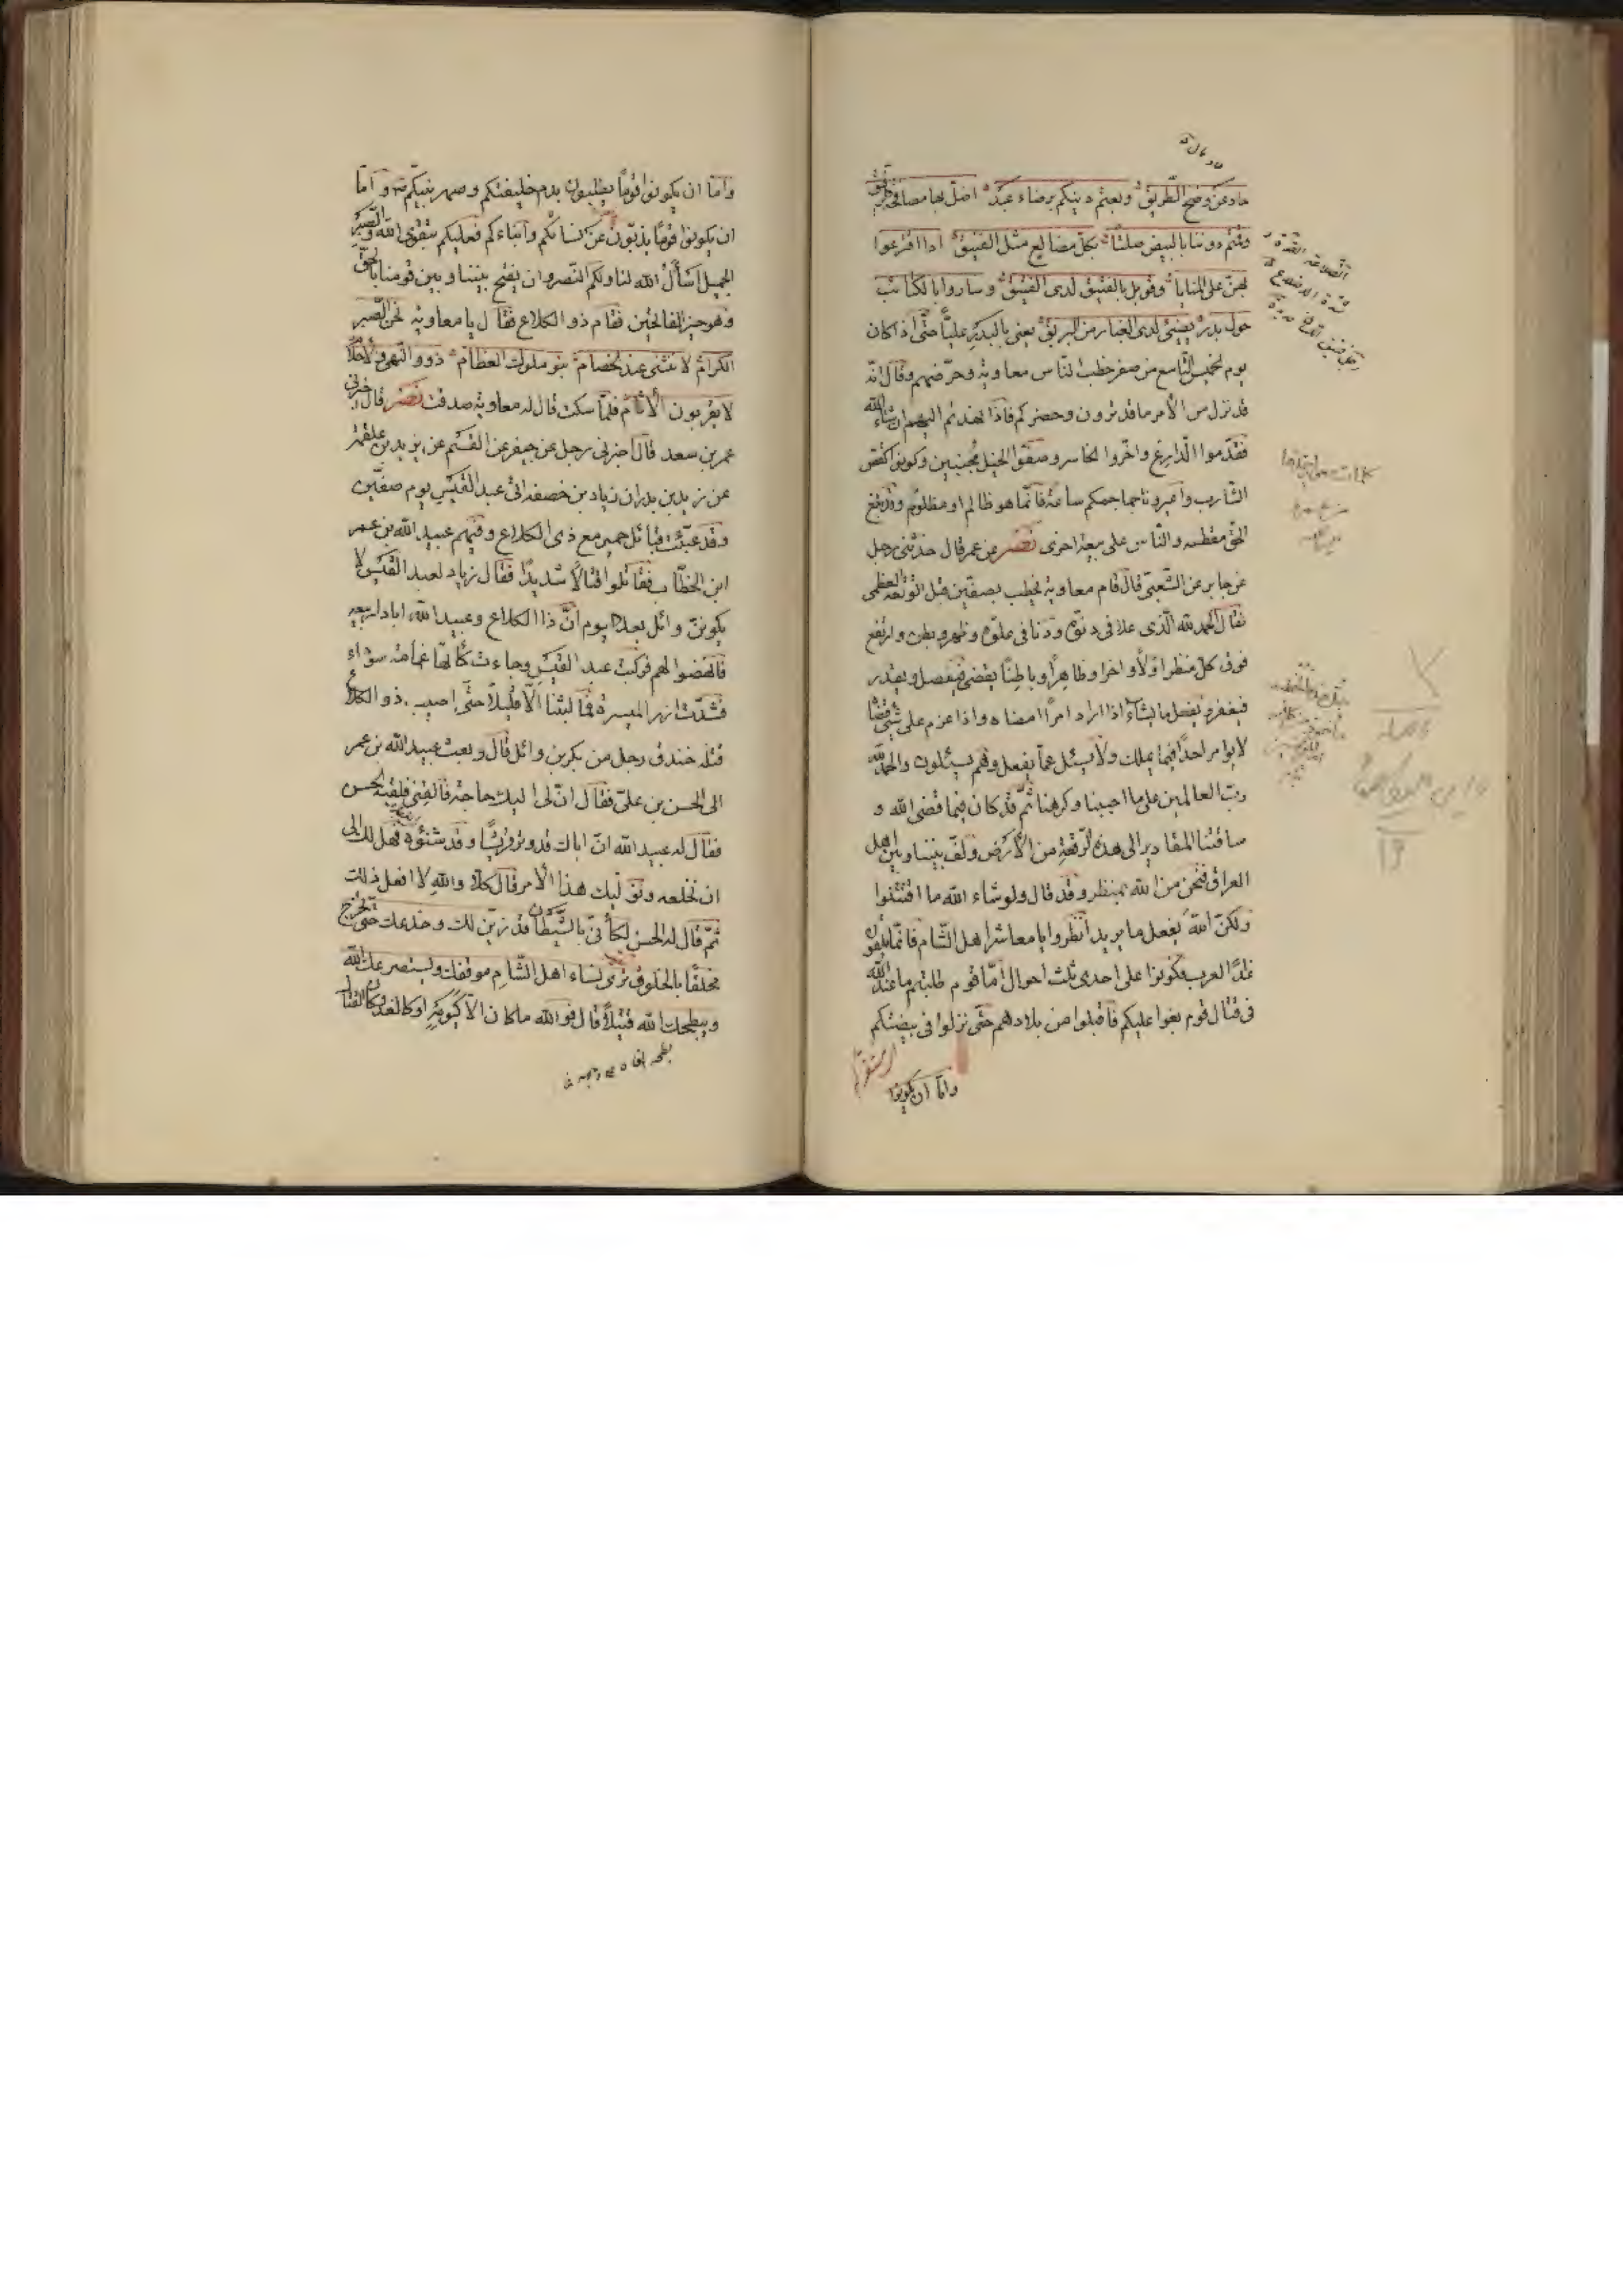 حاد عن وضح الطّريق وبعتم دينكم برضاء عبد اضلّ بها مصافحة
وقمتم دوننا بالبيض صلتًا بكلّ مصانع مثل الفنيق اذا افزعوا
بهنّ على المنايا وقوبل بالفنيق لدى الفنيق وساروا بالكتائب
حول بدر يضيئ لدى الغبار من البريق يعنى بالبدر عليًّا حتّى اذا كان
يوم الخميس التّاسع من صفر خطب النّاس معاوية وحرّضهم وقال انّه
قد نزل من الأمر ما قد ترون وحضركم فاذا نهدتم اليهم ان شاء الله
فقدّموا الدّارع واخّروا الحاسر وصفّوا الخيل مجنبين وكونوا كقصّ
الشّارب واعيرونا جماجمكم ساعة فانّما هو ظالم او مظلوم وقد بلغ
الحقّ مقطعه والنّاس على تعبئة اخرى نصر عن عمر قال حدّثنى رجل
عن جابر عن الشّعبى قال قام معاوية يخطب بصفّين قبل الوقعة العظمى
فقال الحمد لله الّذى علا فى دنوّه ودنا فى علوّه وظهر وبطن وارتفع
فوق كلّ منظر اوّلاً واخرا وظاهرًا وباطنًا يقضى فيفصل ويقدر
فيغفر ويفعل ما يشآء اذا اراد امرًا امضاه واذا عزم على شيئ قضا
لا يوامر احدًا فيما يملك ولا يسئل عمّا يفعل وهم يسئلون والحمد لله
ربّ العالمين على ما احببنا وكرهنا ثمّ قد كان فيما قضى الله و
ساقتنا المقادير الى هذه الرّقعة من الأرض ولفّ بيننا وبين اهل
العراق فنحن من الله بمنظر وقد قال ولو شاء الله ما اقتتلوا
ولكنّ الله يفعل ما يريد انظروا يا معاشر اهل الشّام فانّما تلقون
غدًا العرب فكونوا على احدى ثلث احوال امّا قوم طلبتم ما عند الله
فى قتال قوم بغوا عليكم فاقبلوا من بلادهم حتّى نزلوا فى بيضتكم
وامّا ان يكونوا
وامّا ان يكونوا قومًا يطلبون بدم خليفتكم وصهر نبيّكم وامّا
ان يكونوا قومًا يذبّون عن نسائكم وابناءكم فعليكم بتقوى الله والصّبر
الجميل اسأل الله لنا ولكم النّصر وان يفتح بيننا وبين قومنا بالحقّ
وهو خير الفاتحين فقام ذو الكلاع فقال يا معاوية نحن الصّبر
الكرام لا ننثنى عند الخصام بنو ملوك العظام ذوو النّهى والأحلام
لا يقربون الأثام فلمّا سكت قال له معاوية صدقت نصر قال اخبرنى
عمر بن سعد قال اخبرنى رجل عن جيفر عن القسم عن يزيد بن علقمة
عن زيد بن بدر ان زياد بن خصفة اتى عبد القيس يوم صفّين
وقد عبّئت قبائل حمير مع ذى الكلاع وفيهم عبيد الله بن عمر
ابن الخطّاب فقاتلوا قتالاً شديدًا فقال زياد لعبد القيس لا
يكوننّ وائل بعد اليوم انّ ذا الكلاع وعبيد الله ابادا ربيعه
فانهضوا لهم فركبت عبد القيس وجاءت كأنّها غمامة سوداء
فشدّت ازر الميسرة فما لبثنا الاّ قليلاً حتّى اصيب ذو الكلاع
قتله خندف رجل من بكر بن وائل قال وبعث عبيد الله بن عمر
الى الحسن بن علىّ فقال انّ لى اليك حاجة فالقنى فلقيه الحسن
فقال له عبيد الله انّ اباك قد وتر قريشًا وقد شنئوه فهل لك الى
ان تخلعه ونولّيك هذا الأمر قال كلاّ والله لا افعل ذلك
ثمّ قال له الحسن لكأنّى بالشّيطان قد زيّن لك وخدعك حتّى اخرج
مخلقًا بالخلوق ترى نساء اهل الشّام موقفك وليستصرعك الله
ويبطحك الله قتيلاً قال فوالله ما كان الاّ كيومه او كالغد وكان القتال